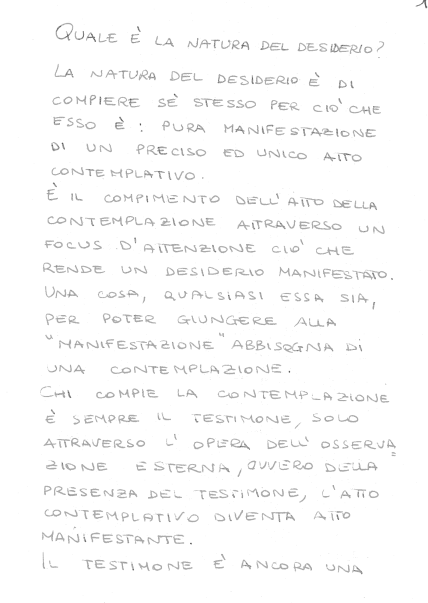 QUALE È LA NATURA DEL DESIDERIO?
LA NATURA DEL DESIDERIO È DI
COMPIERE SÈ STESSO PER CIO' CHE
ESSO È: PURA MANIFESTAZIONE
DI UN PRECISO ED UNICO ATTO
CONTEMPLATIVO.
È IL COMPIMENTO DELL'ATTO DELLA
CONTEMPLAZIONE ATTRAVERSO UN
FOCUS D'ATTENZIONE CIO' CHE
RENDE UN DESIDERIO MANIFESTATO.
UNA COSA, QUALSIASI ESSA SIA,
PER POTER GIUNGERE ALLA
"MANIFESTAZIONE" ABBISOGNA DI
UNA CONTEMPLAZIONE.
CHI COMPIE LA CONTEMPLAZIONE
È SEMPRE IL TESTIMONE, SOLO
ATTRAVERSO L'OPERA DELL'OSSERVA=
ZIONE ESTERNA, OVVERO DELLA
PRESENZA DEL TESTIMONE, L'ATTO
CONTEMPLATIVO DIVENTA ATTO
MANIFESTANTE.
IL TESTIMONE È ANCORA UNA